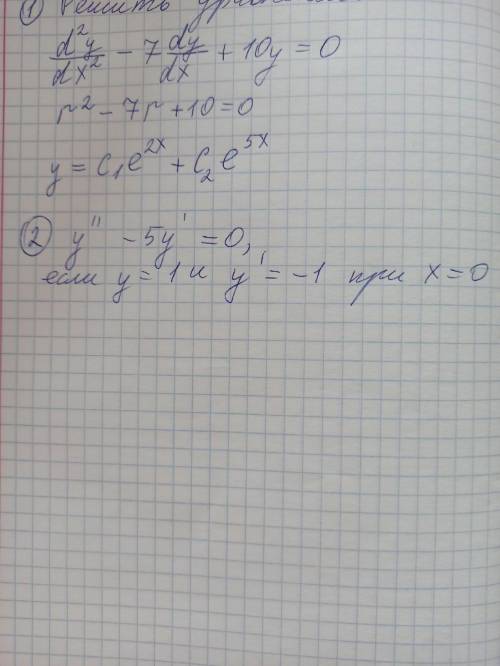 ① Решить
d²y/dx² - 7 dy/dx + 10y = 0
r² - 7r + 10 = 0
y = C₁e²ˣ + C₂e⁵ˣ
② y'' - 5y' = 0,
если y = 1 и y' = -1 при x = 0